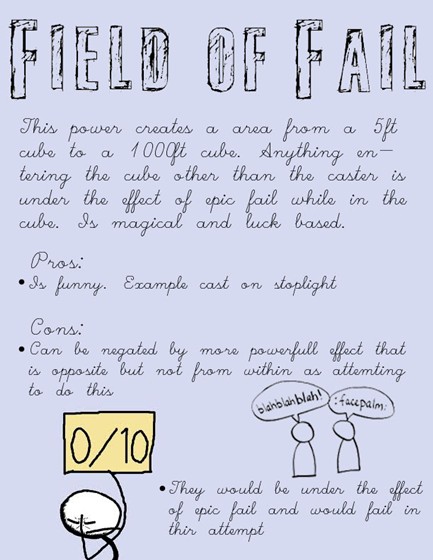 FIELD OF FAIL
This power creates a area from a 5ft
cube to a 1000ft cube. Anything en-
tering the cube other than the caster is
under the effect of epic fail while in the
cube. Is magical and luck based.
Pros:
• Is funny. Example cast on stoplight
Cons:
• Can be negated by more powerfull effect that
is opposite but not from within as attemting
to do this
blahblahblah!
:facepalm:
0/10
• They would be under the effect
of epic fail and would fail in
thir attempt